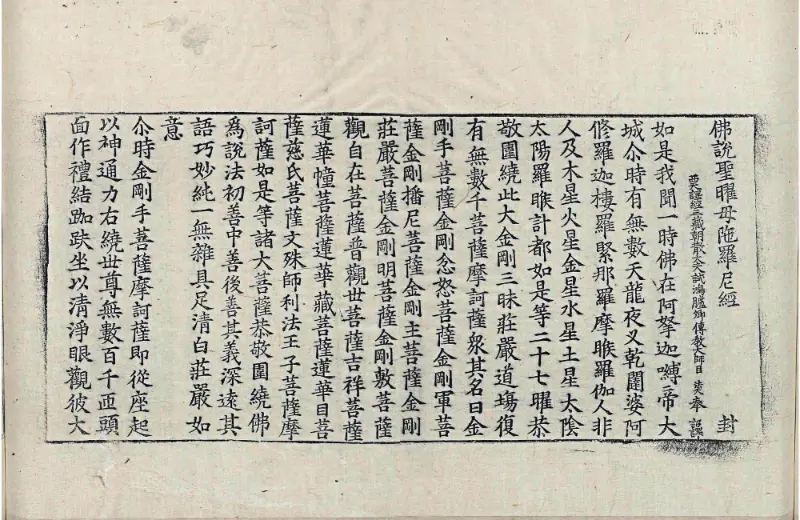 佛說聖曜母陁羅尼經 封
譯經三藏朝散大夫試鴻臚卿傳教大師臣 奉
如是我聞一時佛在阿拏迦嚩帝大
城尒時有無數天龍夜叉乾闥婆阿
修羅迦樓羅緊那羅摩睺羅伽人非
人及木星火星金星水星土星太陰
太陽羅睺計都如是等二十七曜恭
敬圍繞此大金剛三昧莊嚴道塲復
有無數千菩薩摩訶薩衆其名曰金
剛手菩薩金剛忿怒菩薩金剛軍菩
薩金剛播尼菩薩金剛主菩薩金剛
莊嚴菩薩金剛明菩薩金剛敷菩薩
觀自在菩薩普觀世菩薩吉祥菩薩
蓮華幢菩薩蓮華藏菩薩蓮華目菩
薩慈氏菩薩文殊師利法王子菩薩摩
訶薩如是等諸大菩薩恭敬圍繞佛
爲說法初善中善後善其義深遠其
語巧妙純一無雜具足清白莊嚴如
意
尒時金剛手菩薩摩訶薩即從座起
以神通力右繞世尊無數百千帀頭
面作禮結跏趺坐以清淨眼觀彼大